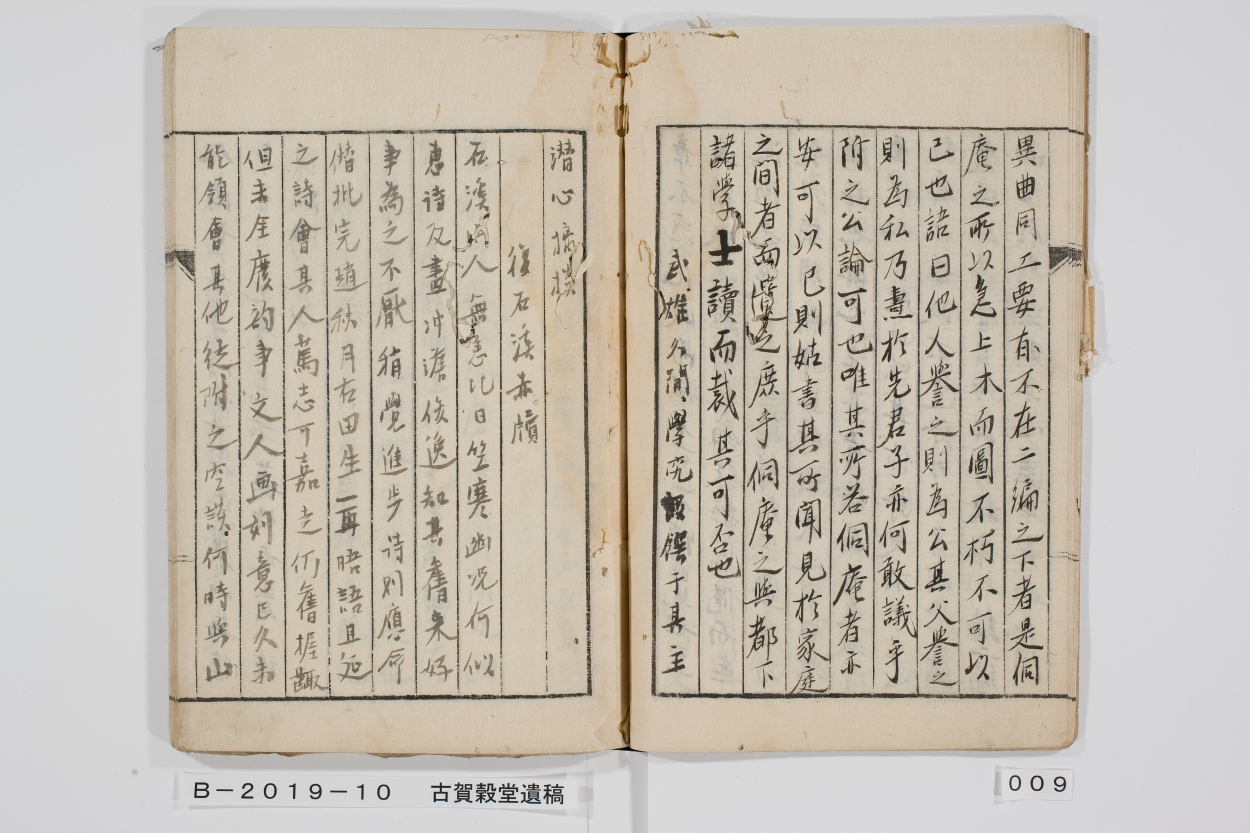 異曲同工要有不在二編之下者是侗
庵之所以急上木而圖不朽不可以
已也語曰他人譽之則為公其父譽之
則為私乃壽於先君子亦何敢議乎
附之公論可也唯其所若侗庵者亦
安可以已則姑書其所聞見於家庭
之間者而之庶乎侗庵之與都下
諸學士讀而裁其可否也
武雄久間學究 饌于其主
潜心
復石溪赤牘
石溪人無恙比日竺寒幽况何似
惠詩及畫冲澹俊逸知其舊来好
事為之不厭稍覺進步詩則應命
僭批完趙秋月右田生一再晤語且延
之詩會其人篤志可嘉走仍舊握齱
但未全廢韵事文人画刻意已久未
能領會其他徒附之空談何時與山
B-2019-10 古賀穀堂遺稿
009